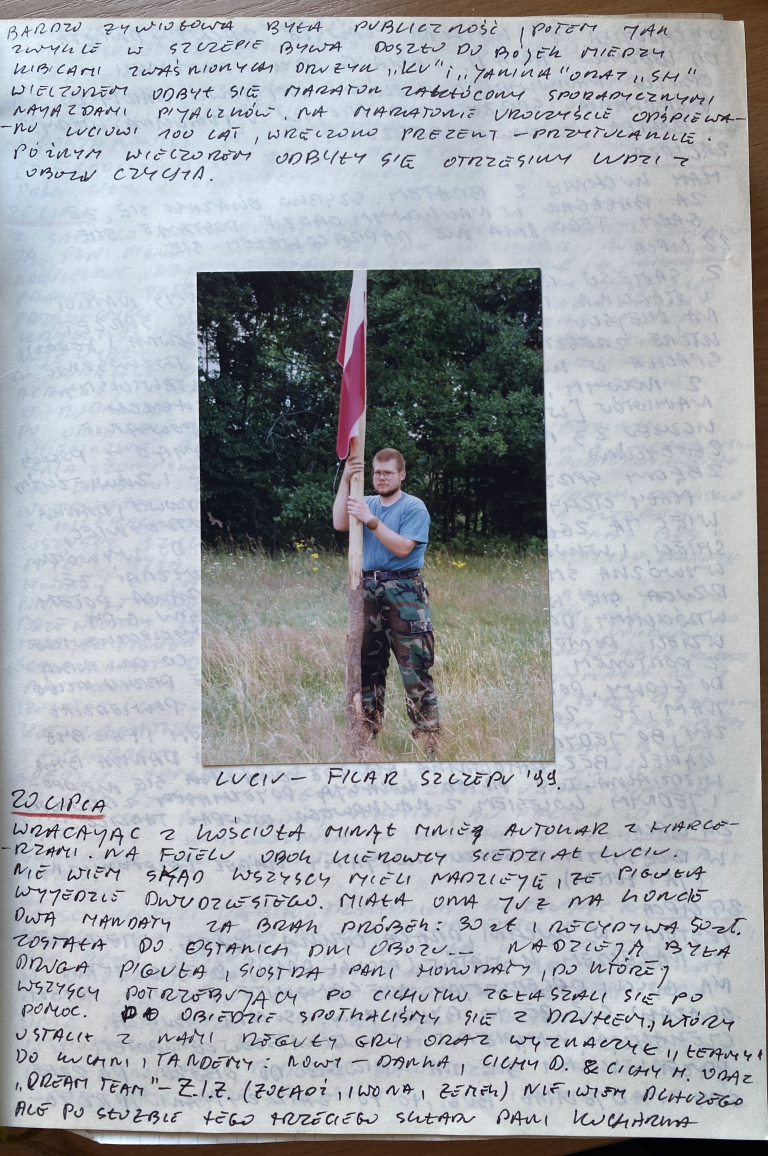 BARDZO ŻYWIOŁOWA BYŁA PUBLICZNOŚĆ, POTEM JAK
ZWYKLE W SZCZEPIE BYWA DOSZŁO DO BÓJEK MIĘDZY
KIBICAMI ZWAŚNIONYCH DRUŻYN „KU" i „JANINA" ORAZ „SH"
WIECZOREM ODBYŁ SIĘ MARATON ZAKŁÓCONY SPORADYCZNYMI
NAJAZDAMI PIJACZKÓW. NA MARATONIE UROCZYŚCIE ODŚPIEWA-
-NO LUCIOWI 100 LAT, WRĘCZONO PREZENT – PRZYTULANKĘ.
PÓŹNYM WIECZOREM ODBYŁY SIĘ OTRZĘSINY LUDZI Z
OBOZU CZYCHA.
LUCIU – FILAR SZCZEPU '99.
20 LIPCA
WRACAJĄC Z KOŚCIOŁA MINĄŁ MNIE AUTOKAR Z HARCE-
-RZAMI. NA FOTELU OBOK KIEROWCY SIEDZIAŁ LUCIU.
NIE WIEM SKĄD WSZYSCY MIELI NADZIEJĘ, ŻE PIGUŁA
WYJEDZIE DWUDZIESTEGO. MIAŁA ONA JUŻ NA KONCIE
DWA MANDATY ZA BRAK PRÓBEK: 30 zł i RECYDYWA 50 zł.
ZOSTAŁA DO OSTANICH DNI OBOZU... NADZIEJĄ BYŁA
DRUGA PIGUŁA, SIOSTRA PANI HONORATY, DO KTÓREJ
WSZYSCY POTRZEBUJĄCY PO CICHUTKU ZGŁASZALI SIĘ PO
POMOC. PO OBIEDZIE SPOTKALIŚMY SIĘ Z DRUHEM, KTÓRY
USTALIŁ Z NAMI REGUŁY GRY ORAZ WYZNACZYŁ „TEAMY"
DO KUCHNI, TANDEMY: NOWY – DANKA, CICHY D. & CICHY M. ORAZ
„DREAM TEAM" – Z.I.Z. (ŻOŁĄDŹ, IWONA, ZEMEK) NIE WIEM DLACZEGO
ALE PO SŁUŻBIE TEGO TRZECIEGO SKŁADU PANI KUCHARKA